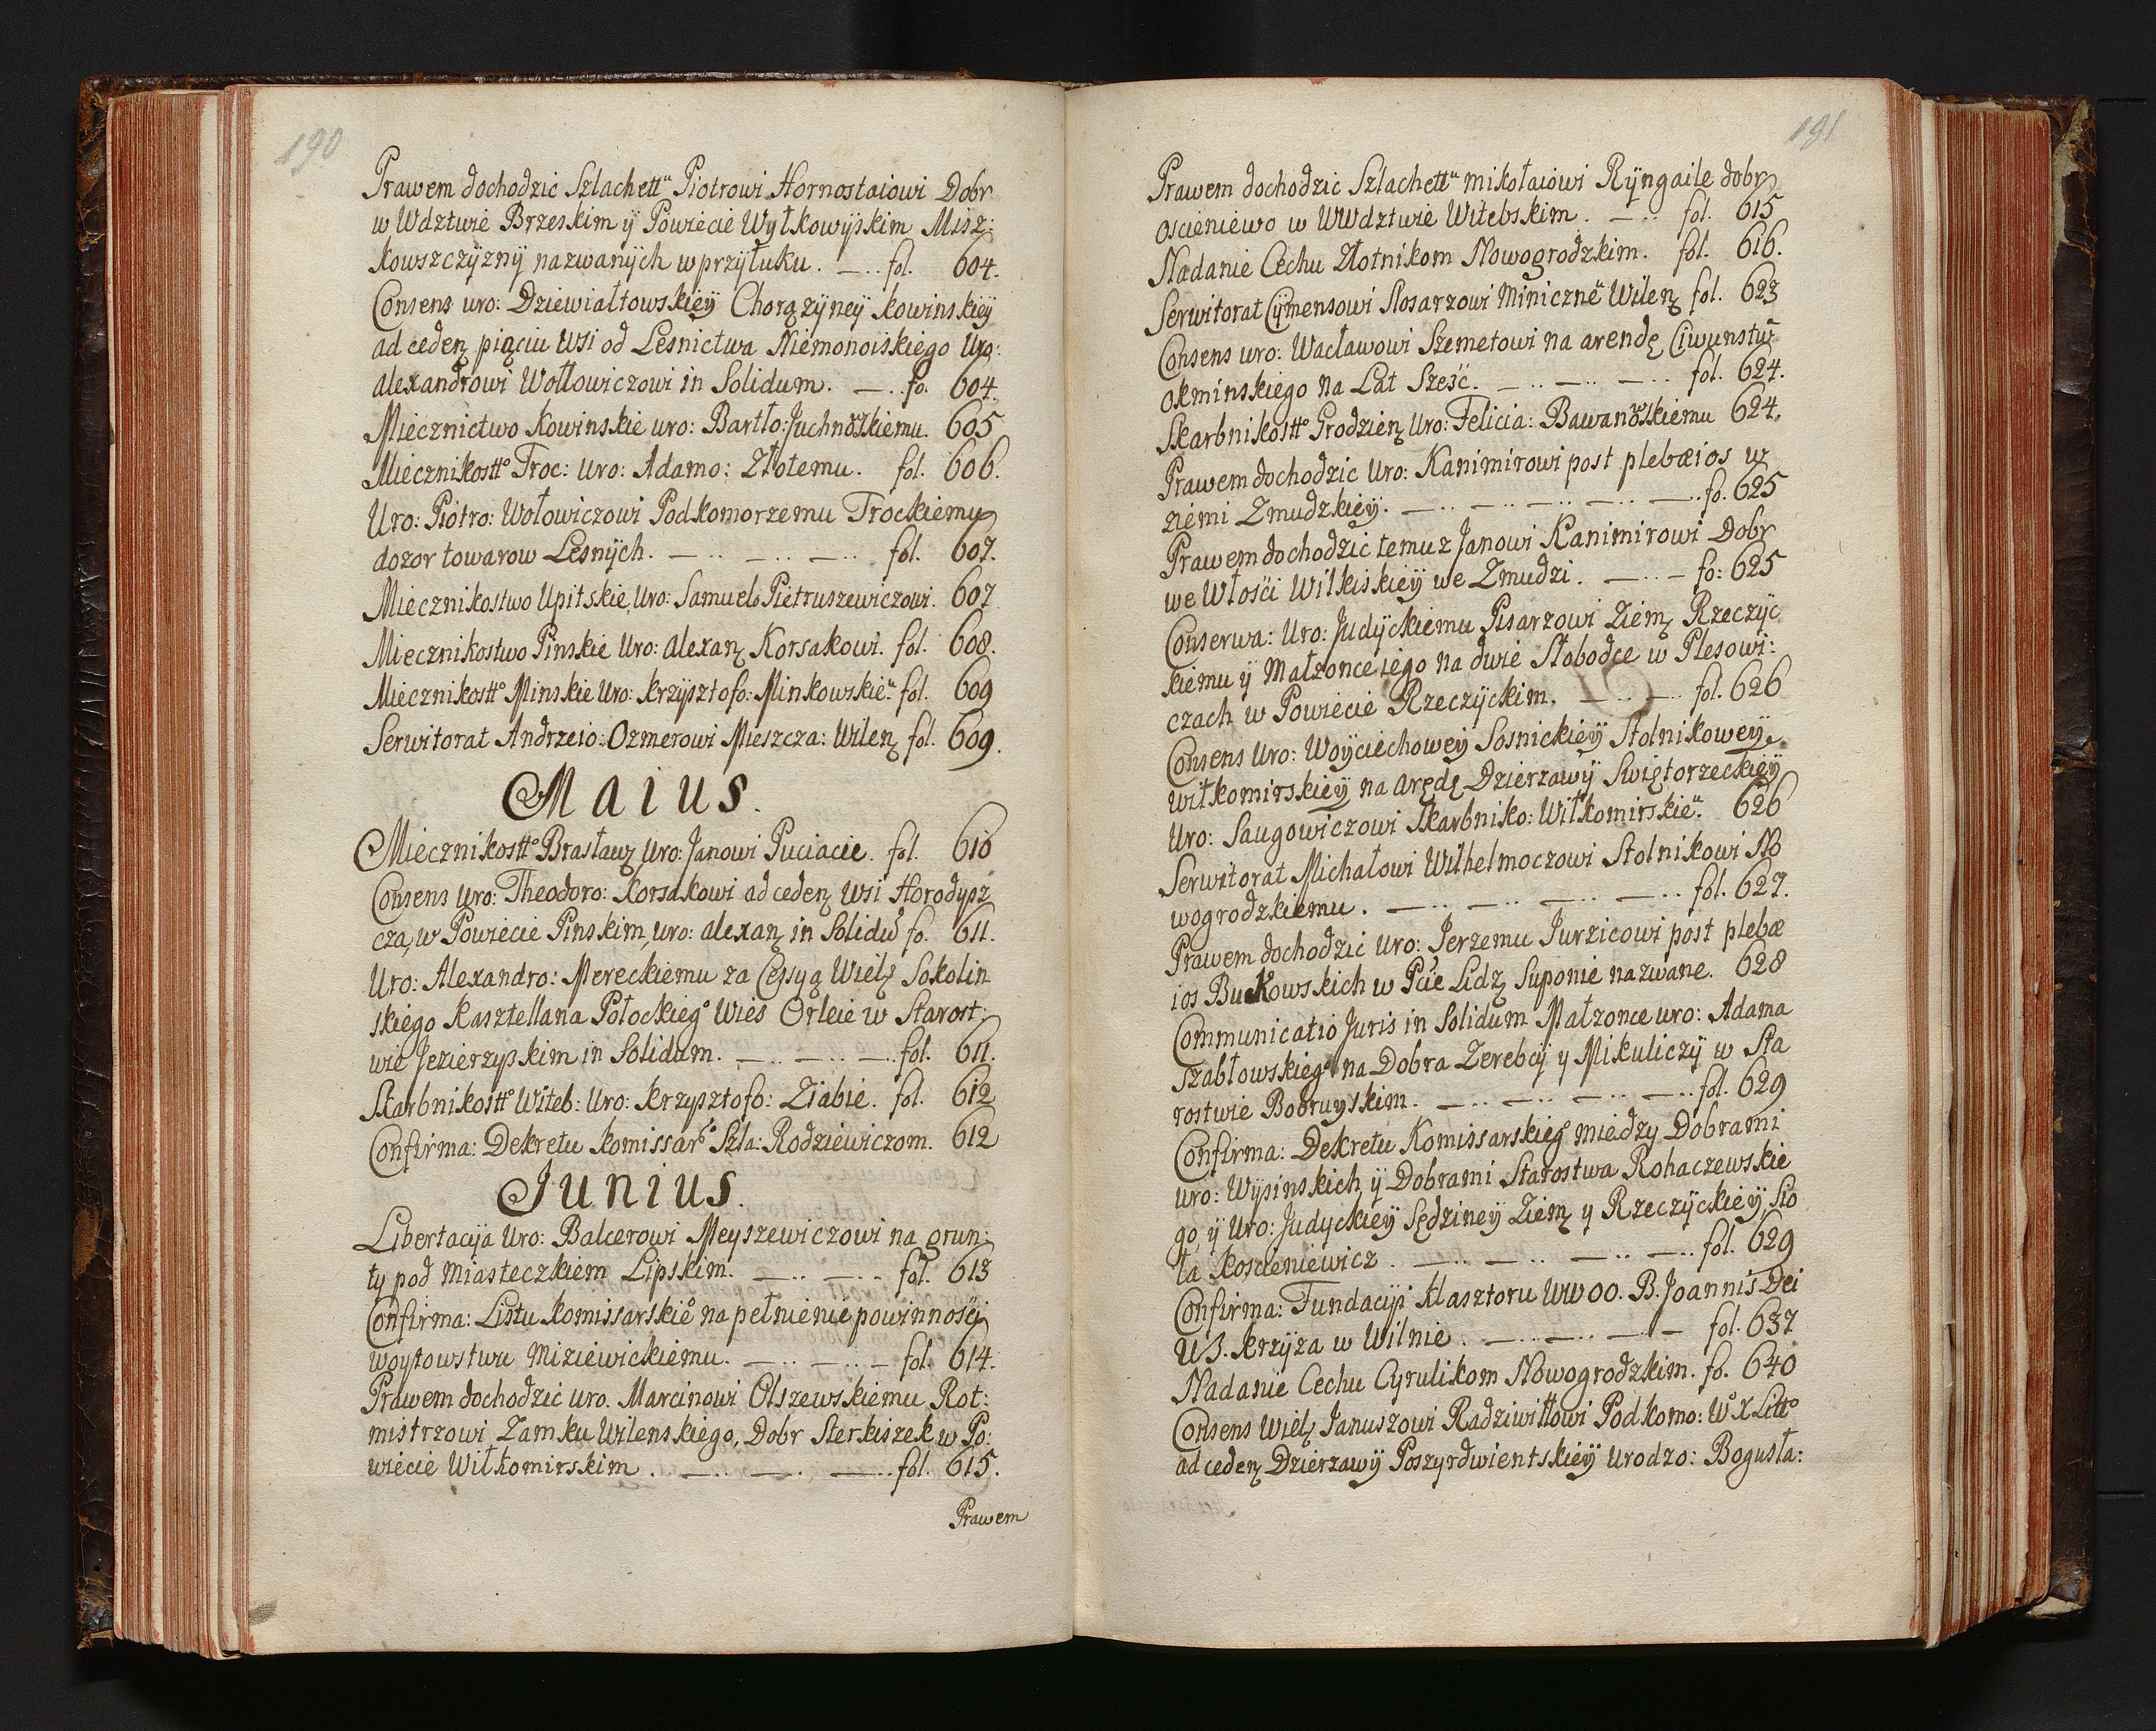 190
Prawem dochodzic Szlachettᵘ Piotrowi Hornostaiowi Dobr
w Wdztwie Brzeskim ÿ Powiecie Wyłkowÿskim Misz:
kowszczÿznÿ nazwanÿch w przyłuku. — .. fol. 604.
Consens uro: Dziewiałtowskieÿ Chorązÿneÿ kowinskieÿ
ad ceden piąciu wsi od Lesnictwa Niemonoiskiego Uro:
alexandrowi Wołłowiczowi in Solidum. — .. fo. 604.
Miecznictwo Kowinskie uro: Bartło: Juchnowskiemu. 605
Miecznikosttº Troc: uro: Adamo: Złotemu. fol. 606.
Uro: Piotro: Wołowiczowi Podkomorzemu Trockiemu
dozor towarow Lesnÿch. — .. — .. — .. fol. 607.
Miecznikostwo Upitskie, Uro: Samuelo Pietruszewiczowi. 607
Miecznikostwo Pinskie Uro: alexan Korsakowi. fol. 608.
Miecznikosttº Minskie Uro: krzÿsztofo: Minkowskieᵘ fol. 609
Serwitorat Andrzeio: Ozmerowi Mieszcza: Wilen fol. 609.
Maius.
Miecznikosttº Brasław Uro: Janowi Puciacie. fol. 610
Consens uro: Theodoro: Korsakowi ad ceden wsi Horodysz
cza, w Powiecie Pinskim, uro: alexan in Solidū fo. 611.
Uro: Alexandro: Mereckiemu za Cessÿą Wiel Sokolin
skiego Kasztellana Połockiegº Wies Orleie w Starost:
wie Jezierzyskim in Solidum. — .. — .. — .. fol. 611.
Skarbnikosttº Witeb: Uro: krzysztofo: Ziabie. fol. 612
Confirma: Dekretu komissarº Szla: Rodziewiczom. 612
Junius.
Libertacÿa Uro: Balcerowi Meyszewiczowi na grun:
ty pod miasteczkiem Lipskim. — .. — .. fol. 613
Confirma: Listu komissarskieº na pełnienie powinnosci
woytowstwu miziewickiemu. — .. — .. — fol. 614.
Prawem dochodzic uro. Marcinowi Olszewskiemu Rot:
mistrzowi Zamku Wilenskiego, Dobr Sterkiszek w Po:
wiecie Wiłkomirskim. — .. — .. — .. fol. 615.
Prawem
191
Prawem dochodzic Szlachettᵘ mikołaiowi Rÿngaile dobr
oscieniewo w WWdztwie Witebskim. — .. fol. 615
Nadanie Cechu Złotnikom Nowogrodzkim. fol. 616.
Serwitorat Cÿmensowi slosarzowi Minicznēᵘ Wilen fol. 623
Consens uro: Wacławowi Szemetowi na arendę Ciwunstw
okminskiego na Lat Szesć. — .. — .. — .. fol. 624.
Skarbnikosttº Grodzien Uro: Felicia: Bawanowskiemu 624.
Prawem dochodzic Uro: Kanimirowi post plebæios w
ziemi Zmudzkieÿ. — .. — .. — .. — .. — .. fo. 625
Prawem dochodzic temuz Janowi Kanimirowi Dobr
we Włosci Wilkiskieÿ we Zmudzi. — .. — fo: 625
Conserwa: Uro: Judÿckiemu Pisarzowi Ziem Rzeczÿc
kiemu ÿ Małzonce iego na dwie Słobodce w Plesowi:
czach w Powiecie Rzeczÿckim. — .. — .. fol. 626
Consens Uro: Woÿciechoweÿ Sosnickieÿ Stolnikoweÿ
wiłkomirskieÿ na arędę Dzierzawÿ Swiętorzeckieÿ
Uro: Saugowiczowi Skarbniko: Wiłkomirskieᵘ. 626
Serwitorat Michałowi Wilhelmoczowi Stolnikowi No
wogrodzkiemu. — .. — .. — .. — .. fol. 627.
Prawem dochodzic Uro: Jerzemu Jurzicowi post plebæ
ios Bukowskich w Pcie Lidz Suponie nazwane. 628
Communicatio Juris in Solidum Małzonce uro: Adama
Szabłowskiegº na Dobra Zerebcÿ y Mikuliczÿ w Sta
rostwie Bobruyskim. — .. — .. — .. — .. fol. 629
Confirma: Dekretu Komissarskiegº miedzy Dobrami
Uro: Wÿsinskich ÿ Dobrami Starostwa Rohaczewskie
go ÿ Uro: Judyckieÿ Sędzineÿ Ziem y Rzeczÿckieÿ Sio
ła koscieniewicz. — .. — .. — .. — .. fol. 629
Confirma: Fundacÿi Klasztoru WWOO. B. Joannis Dei
US. krzÿza w Wilnie. — .. — .. — .. — fol. 637
Nadanie Cechu Cyrulikom Nowogrodzkim. fo. 640
Consens Wiel Januszowi Radziwiłłowi Podkomo: Wº X Littº
ad ceden Dzierzawÿ Poszyrdwientskieÿ Urodzo: Bogusła: